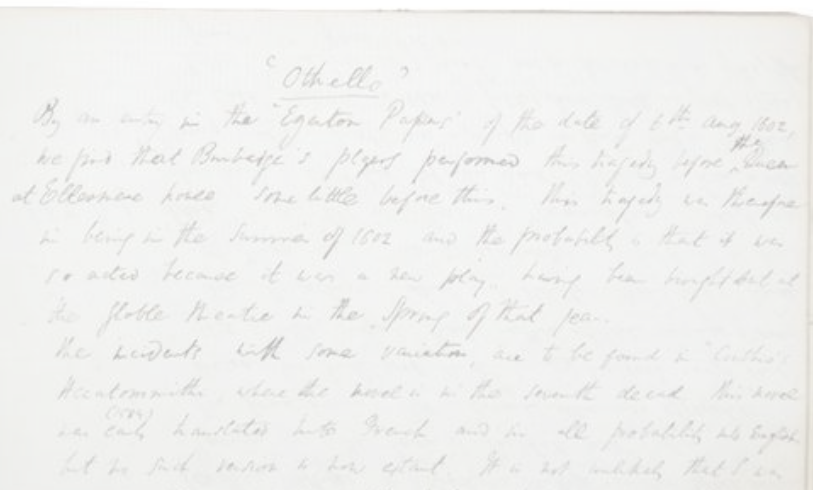 'Othello'
By an entry in the "Egerton Papers" of the date of 6th Aug 1602,
we find that Burbadge's players performed this tragedy before the Queen
at Ellesmere house some little before this. This tragedy was therefore
in being in the summer of 1602 and the probability is that it was
so acted because it was a new play, having been brought out at
the Globe theatre in the Spring of that year.
The incidents with some variation, are to be found in Cinthio's
where the novel is in the seventh decad this novel
was early (1584) translated into French and in all probability into English
but no such version is now extant. It is not unlikely that S was